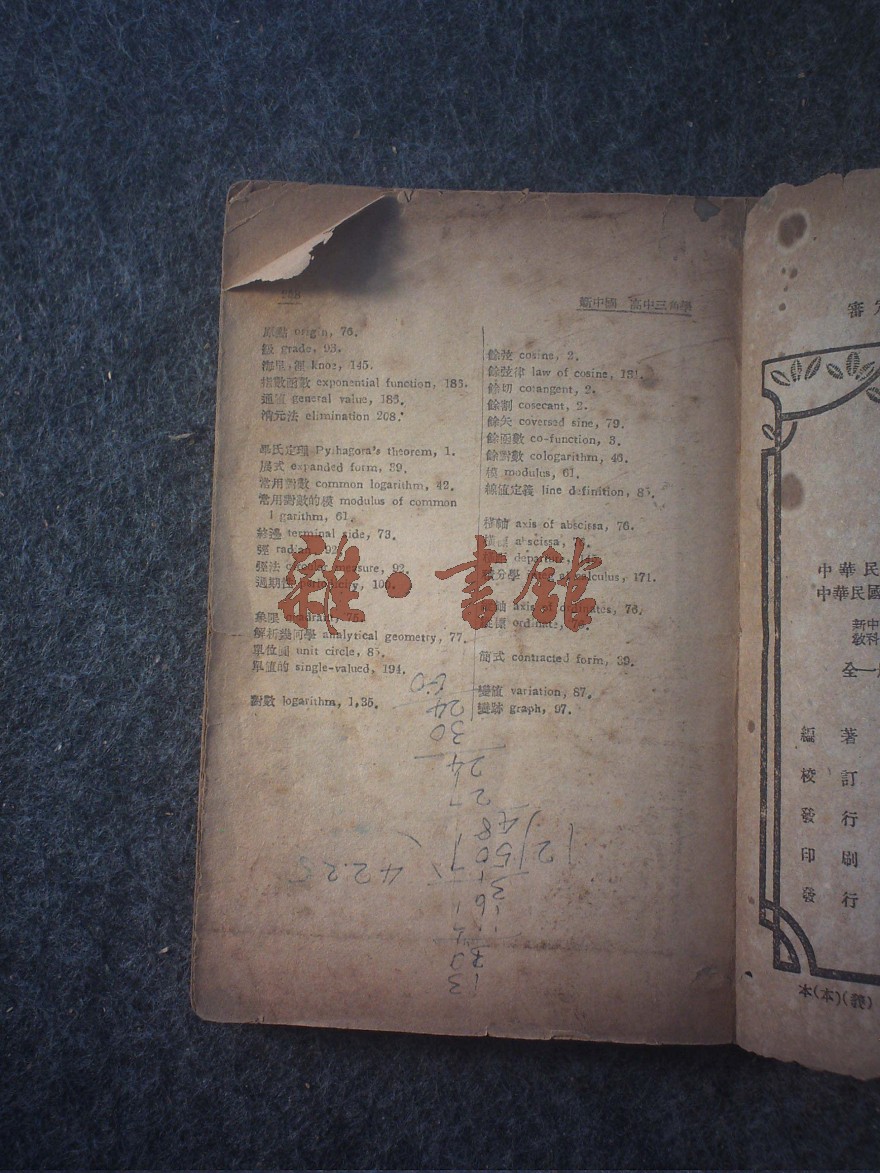 新中國 高中三角學
原點 origin, 76.
級 grade, 93.
海里,浬 knot, 145.
指數函數 exponential function, 185.
通値 general value, 185.
消元法 elimination 208.
畢氏定理 Pythagora's theorem, 1.
展式 expanded form, 39.
常用對數 common logarithm, 42.
常用對數的模 modulus of common
l garithm, 61.
終邊 terminal side, 73.
弳 radian, 92
弳法 circular measure, 92.
週期性 periodicity, 100
象限 quadrant, 76.
解析幾何學 analytical geometry, 77.
單位圓 unit circle, 85.
單值的 single-valued, 194.
對數 logarithm, 1,35.
餘弦 cosine, 2.
餘弦律 law of cosine, 131.
餘切 cotangent, 2.
餘割 cosecant, 2.
餘矢 coversed sine, 79.
餘函數 co-function, 3.
餘對數 cologarithm, 46.
模 modulus, 61.
線値定義 line definition, 85.
橫軸 axis of abscissa, 76.
abscissa, 76.
departure, 145.
積分學 calculus, 171.
縱軸 axis of ordinates, 76.
ordinate, 76.
簡式 contracted form, 39.
變值 variation, 87.
變跡 graph, 97.
雜·書館
60
24
30
24
27
48
12 1507
4225
361
審
中華民
中華民國
新中
教科
全一
編著
校訂
發行
印刷
發行
本(本)(義)